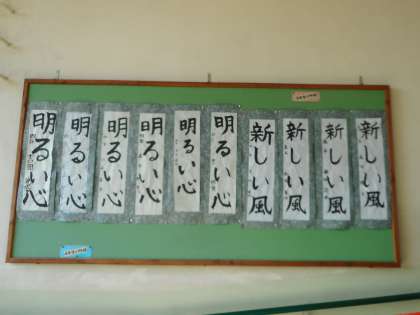 明るい心
明るい心
明るい心
明るい心
明るい心
明るい心
新しい風
新しい風
新しい風
新しい風